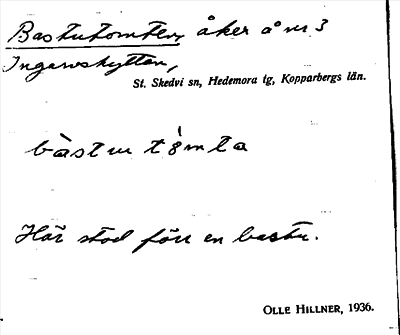 Bastutomten, åker å nr 3
Ingarvshyttan,
St. Skedvi sn, Hedemora tg, Kopparbergs län.
bàstu t8̀mta
Här stod förr en bastu.
OLLE HILLNER, 1936.